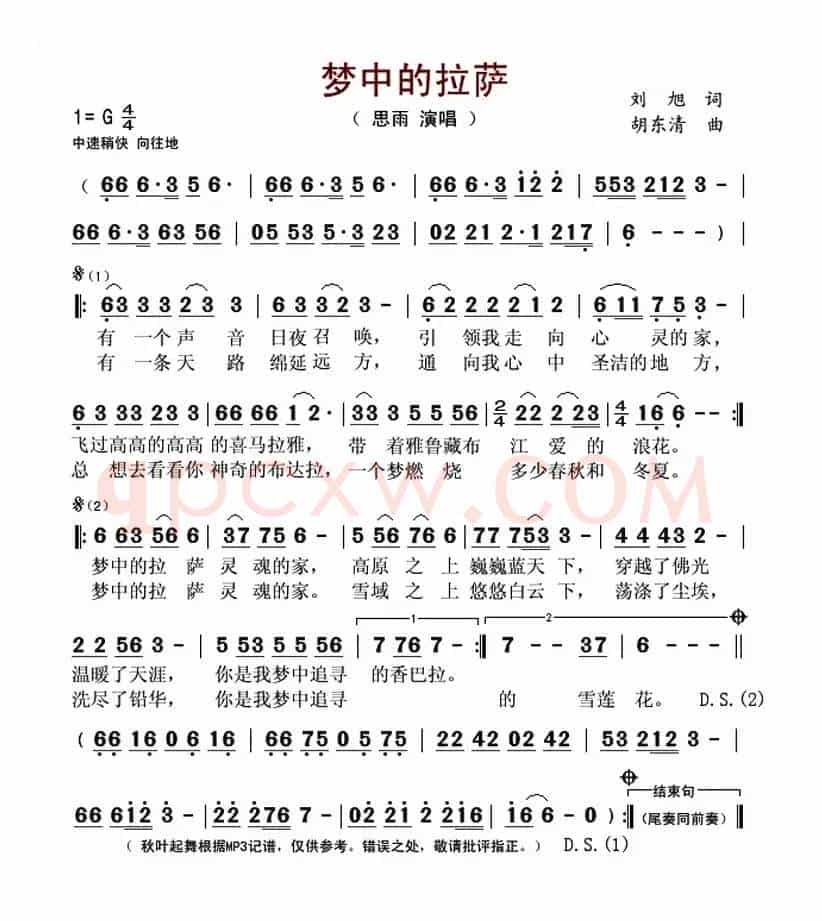 梦中的拉萨
1= G 4/4
（ 思雨 演唱 ）
刘 旭 词
胡东清 曲
中速稍快 向往地
（ 66 6·3 5 6· | 66 6·3 5 6· | 66 6·3 12 2 | 553 212 3 - |
66 6·3 63 56 | 05 53 5·3 23 | 02 21 2·1 217 | 6 - - - ）|
(1)
‖: 63 33 23 3 | 33 32 3 - | 62 22 21 2 | 611 75 3 - |
有 一个声 音 日夜召 唤， 引 领我走 向 心 灵的家，
有 一条天 路 绵延远 方， 通 向我心 中 圣洁的地 方，
63 33 23 3 | 66 66 1 2· | 33 3 5 5 56 | 2/4 22 2 23 | 4/4 16 6 - - :‖
飞过高高的高高 的喜马拉雅， 带 着雅鲁藏布 江 爱 的 浪花。
总 想去看看你 神奇的布达拉，一个梦燃 烧 多少春秋和 冬夏。
qpcxw.COM
(2)
‖: 6 63 56 6 | 37 75 6 - | 5 56 76 6 | 77 753 3 - | 4 4 43 2 |
梦中的拉 萨 灵 魂的家， 高原 之 上 巍巍蓝天 下， 穿越了佛光
梦中的拉 萨 灵 魂的家。 雪域 之 上 悠悠白云 下， 荡涤了尘埃，
1 2
2 2 56 3 - | 5 53 5 5 56 | 7 76 7 - :‖ 7 - - 37 | 6 - - - ‖
温暖了天涯， 你是我梦中追寻 的香巴拉。
洗尽了铅华， 你是我梦中追寻 的 雪莲 花。 D.S.(2)
（ 66 16 0 6 16 | 66 75 0 5 75 | 22 42 02 42 | 53 212 3 - |
结束句
66 612 3 - | 22 276 7 - | 02 21 2 216 | 16 6 - 0 ）:‖ (尾奏同前奏) ‖
（ 秋叶起舞根据MP3记谱，仅供参考。错误之处，敬请批评指正。） D.S.(1)